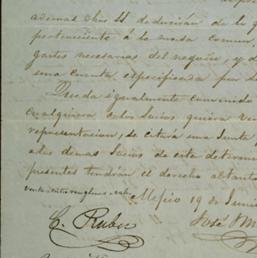 ademas otros 11 deducirán de la g
perteneciente á la masa comun,
gastos necesarios del negocio, y d
una cuenta especificada por
Queda igualmente convenido
cualquiera de los Socios quiera
representacion, se citará una Junta
los demas Socios de esta determi
presentes tendrán el derecho al tanto
Mejico 19 de Junio
C. Ruber
José M